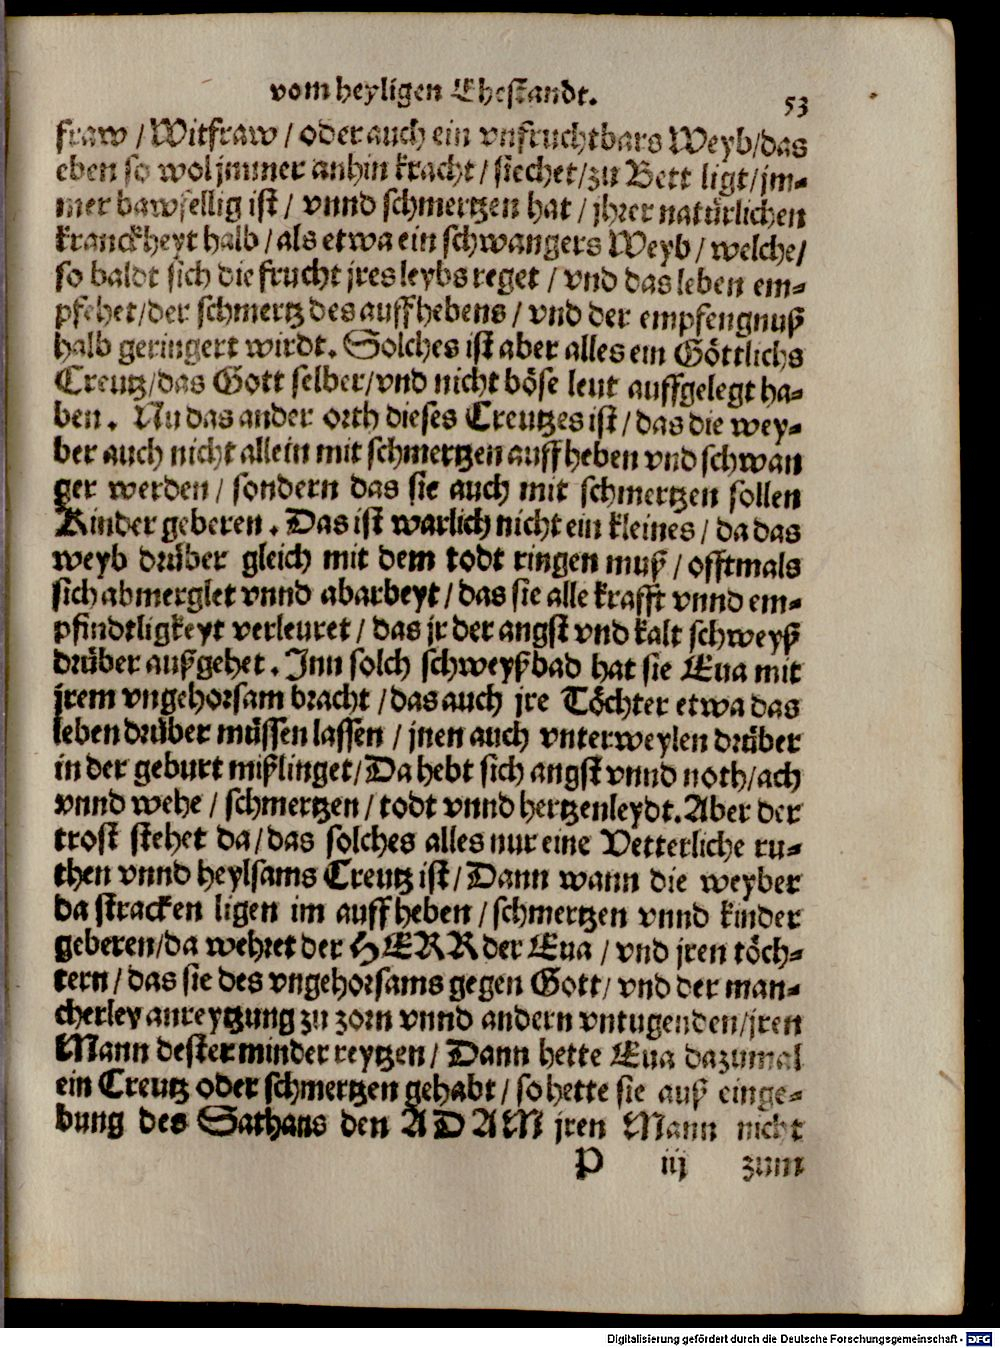 vom heyligen Ehestandt.
53
fraw / Witfraw / oder auch ein vnfruchtbars Weyb/das
eben so wol jmmer anhin kracht / siechet/zu Bett ligt/jm-
mer bawfellig ist / vnnd schmertzen hat / jhrer natürlichen
kranckheyt halb / als etwa ein schwangers Weyb / welche/
so baldt sich die frucht jres leybs reget / vnd das leben em-
pfehet/der schmertz des auffhebens / vnd der empfengnuß
halb geringert wirdt. Solches ist aber alles ein Göttlichs
Creutz/das Gott selber/vnd nicht böse leut auffgelegt ha-
ben. Nu das ander orth dieses Creutzes ist / das die wey-
ber auch nicht allein mit schmertzen auffheben vnd schwan
ger werden / sondern das sie auch mit schmertzen sollen
Kinder geberen. Das ist warlich nicht ein kleines / da das
weyb drüber gleich mit dem todt ringen muß / offtmals
sich abmerglet vnnd abarbeyt / das sie alle krafft vnnd em-
pfindtligkeyt verleuret / das jr der angst vnd kalt schweyß
drüber außgehet. Inn solch schweyßbad hat sie Eua mit
jrem vngehorsam bracht / das auch jre Töchter etwa das
leben drüber müssen lassen / jnen auch vnterweylen drüber
in der geburt mißlinget/Da hebt sich angst vnnd noth/ach
vnnd wehe / schmertzen / todt vnnd hertzenleydt. Aber der
trost stehet da / das solches alles nur eine Vetterliche ru-
then vnnd heylsams Creutz ist / Dann wann die weyber
da stracken ligen im auffheben / schmertzen vnnd kinder
geberen/da wehret der HERR der Eua / vnd jren töch-
tern / das sie des vngehorsams gegen Gott / vnd der man-
cherley anreytzung zu zorn vnnd andern vntugenden/jren
Mann dester minder reytzen / Dann hette Eua dazumal
ein Creutz oder schmertzen gehabt / so hette sie auß einge-
bung des Sathans den ADAM jren Mann nicht
P iij zum
Digitalisierung gefördert durch die Deutsche Forschungsgemeinschaft - DFG